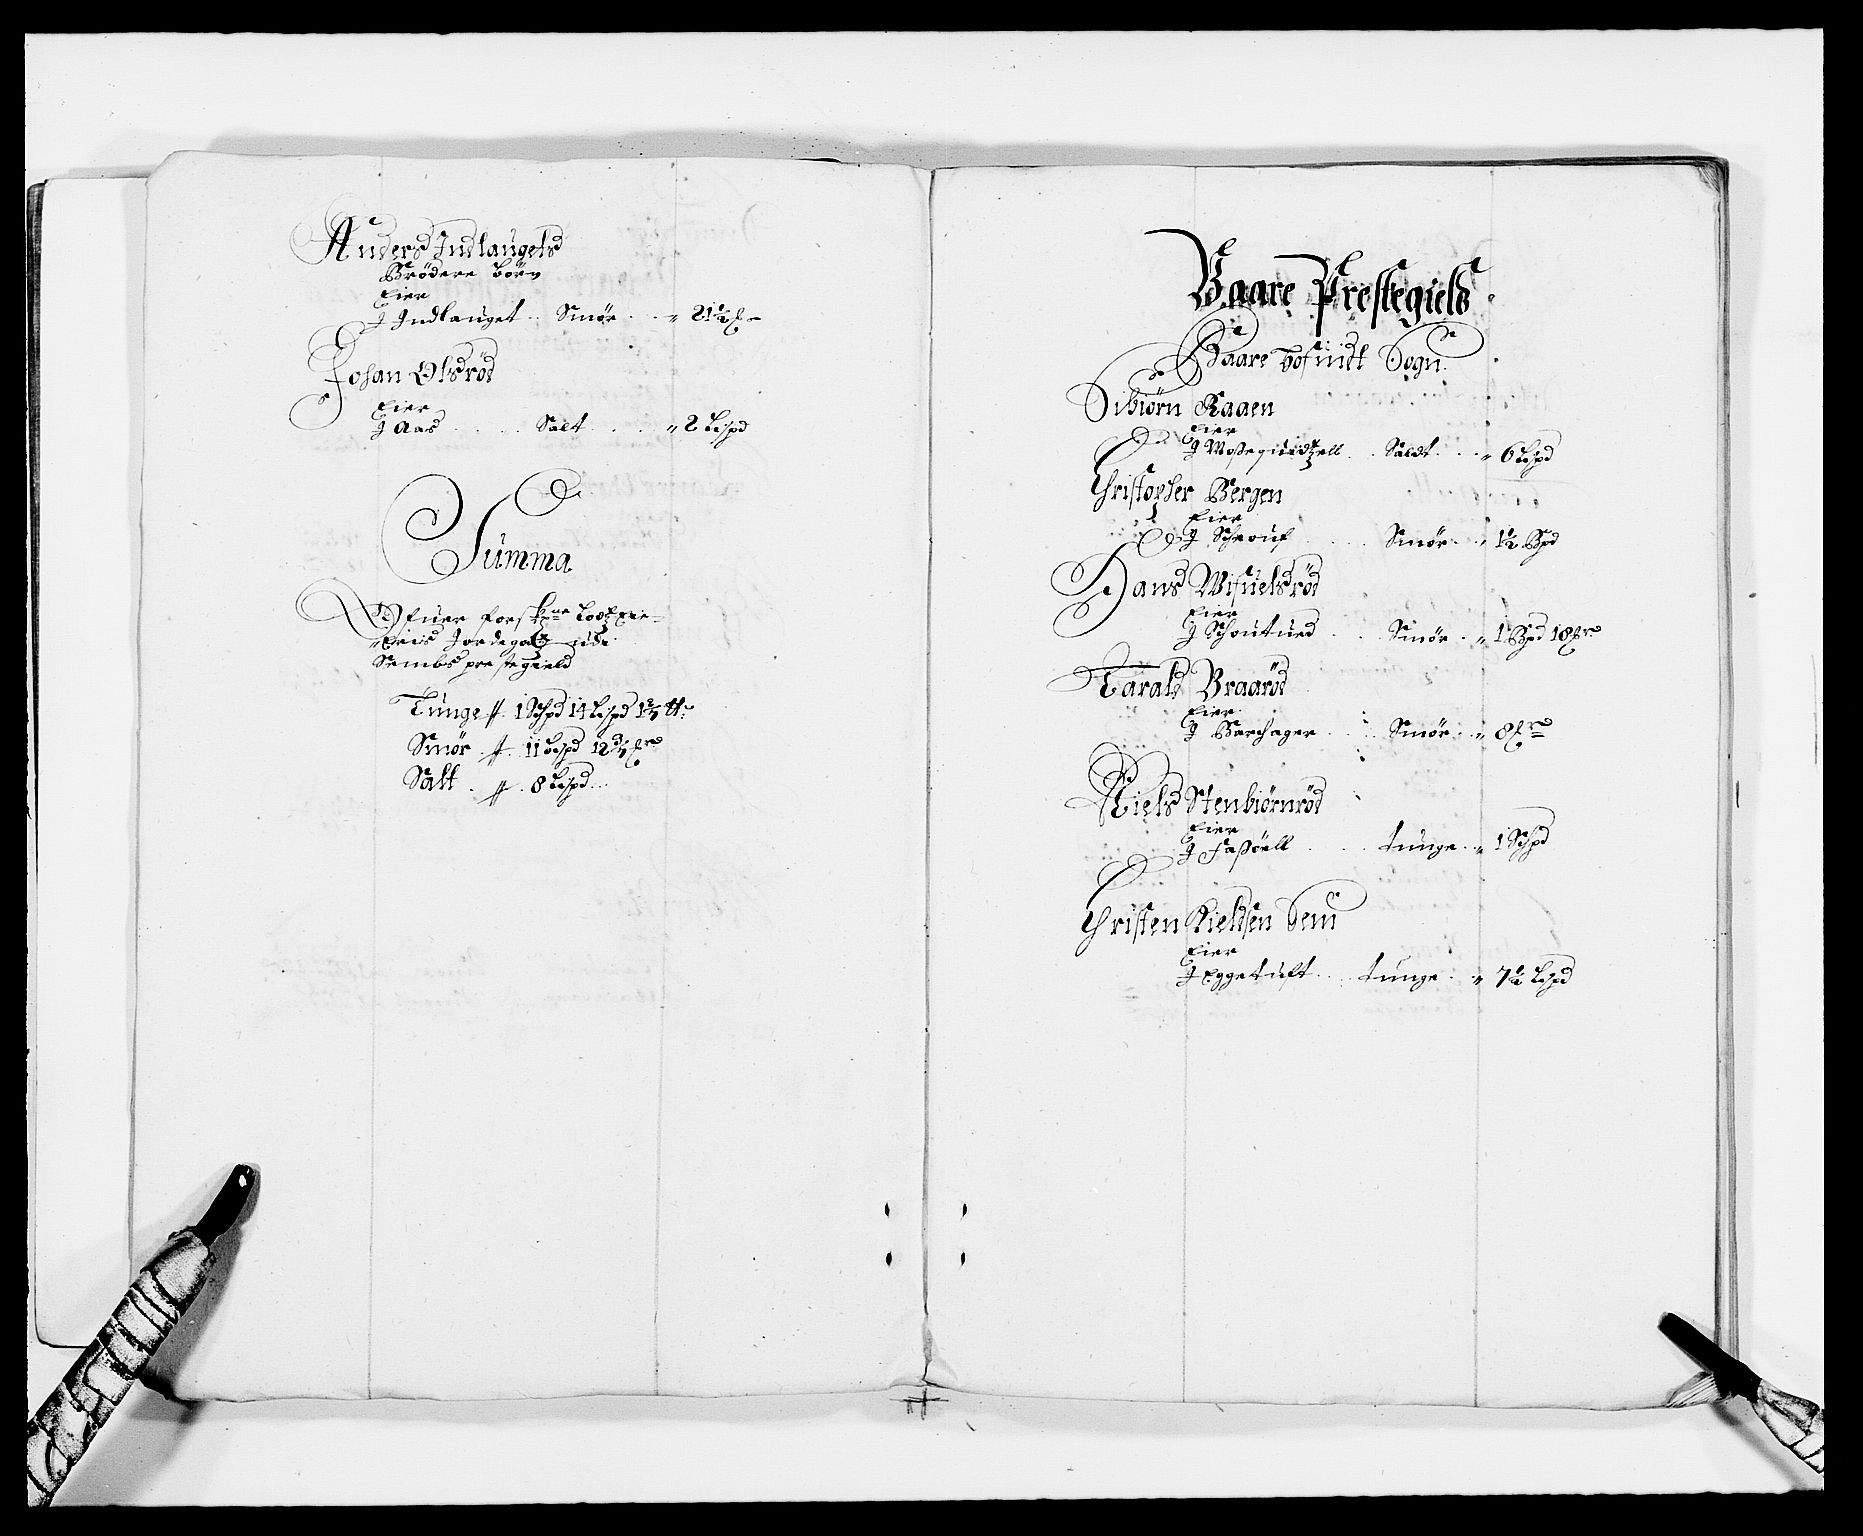 Anders Indlaugets
Brödere börn
Eier
J Indlauget .. Smör .. „ 21½
Johan Olsröd
Eier
J Aas ..... Salt .... „ 2 Lispd
Summa
Ofuer forskne
Jordegotz udi
Sembs prestegield
Tunge 1 Schpd 14 Lispd
Smör 11 Lispd
Salt . 8 Lispd ...
Baare Prestegield
Baare hofuidt Sogn
Sibiörn Raaen
Eier
Saldt .. „ 6 Lispd
Christopher Bergen
Eier
J Schouf .... Smör .. „ 1½ Bpd
Hans Wifuelsröd
Eier
J Schoutued ... Smör .. „ 1 Bpd 18
Tarald Braaröd
Eier
J Barchager .... Smör .. „ 8
Niels Stenbiörnröd
Eier
J Faßöell .... tunge .. „ 1 Schpd
Christen Nielsen Sem
Eier
J Eggetuft ... tunge .. „ 7½ Lispd